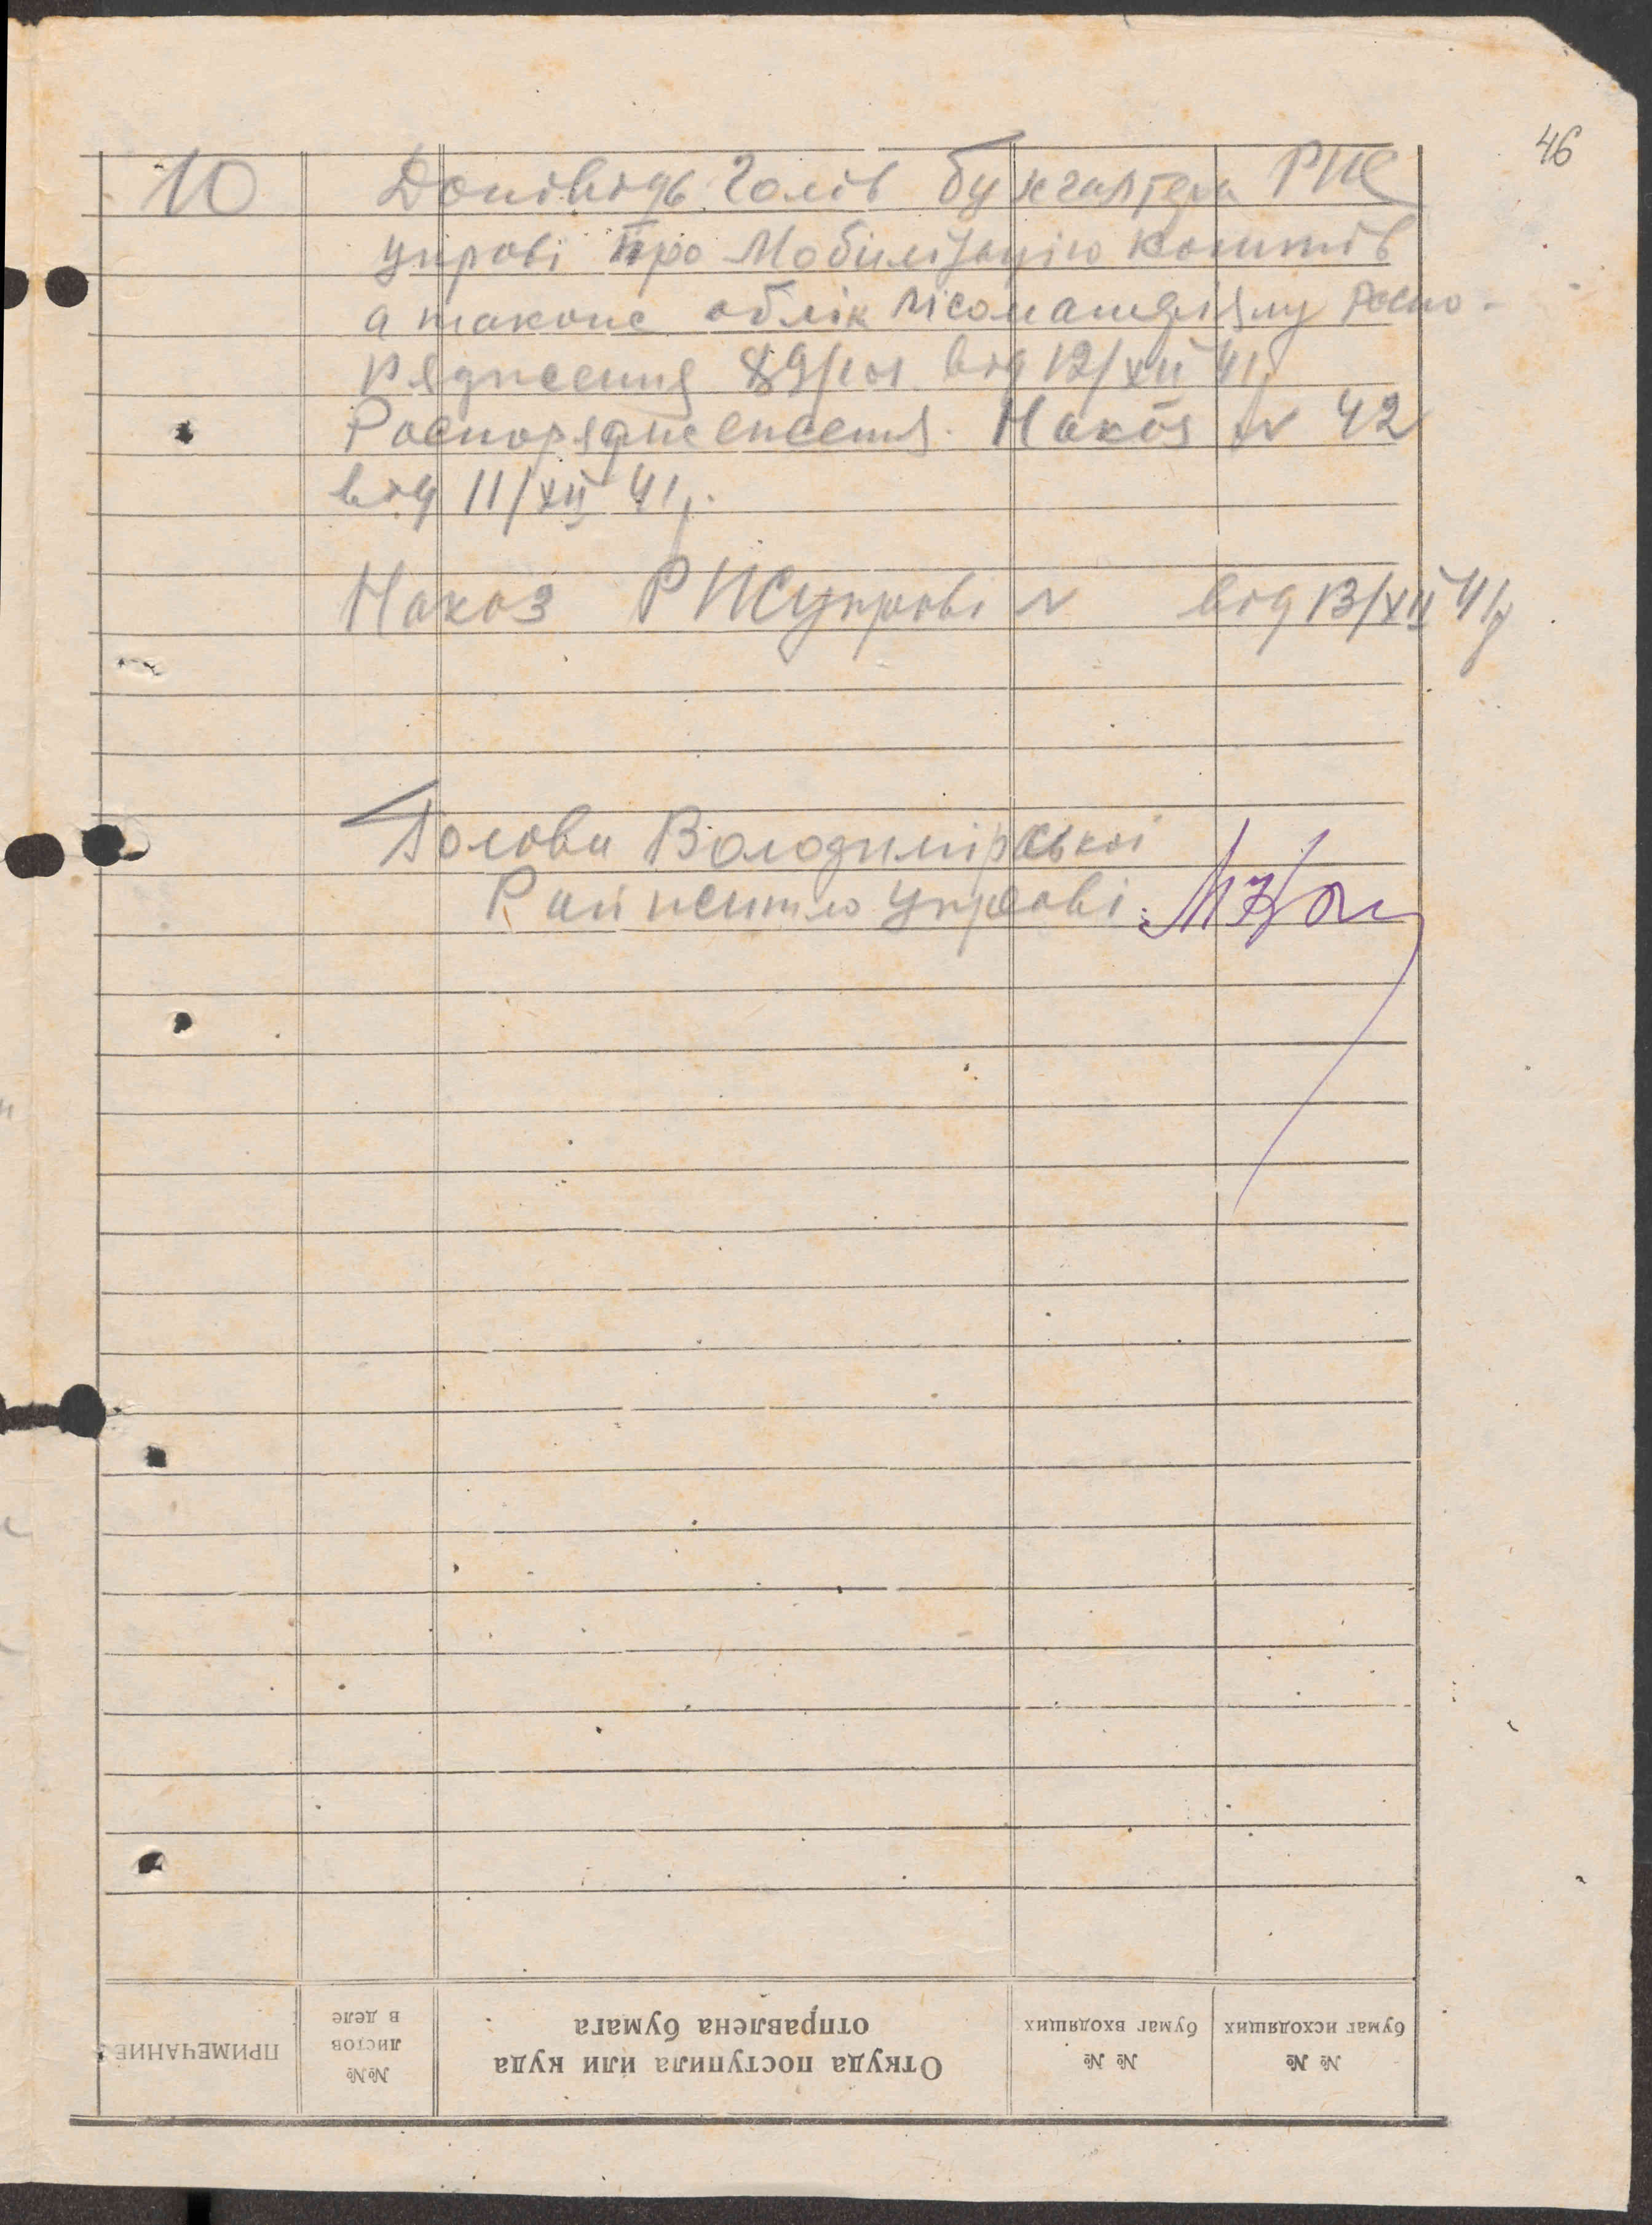 46
10 Доповідь Голов бухгалтера РЖ
управі про Мобілізацію коштів
а також облік лісоматеріялу Роспо-
рядження 89/ від 12/XII 41
Роспорядженення. Наказ № 42
від 11/XII 41р.
Наказ РЖУправі № від 13/XII 41р
Голова Володимірської
Райжитло Управі
ПРИМЕЧАНИЕ
№№ листов в деле
Откуда поступила или куда отправлена бумага
№ № бумаг входящих
№ № бумаг исходящих